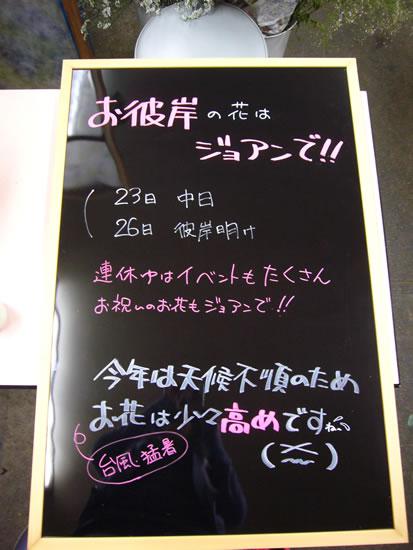 お彼岸の花は
ジョアンで!!
23日 中日
26日 彼岸明け
連休中はイベントもたくさん
お祝いのお花もジョアンで!!
今年は天候不順のため
お花は少々高めですね。
台風・猛暑